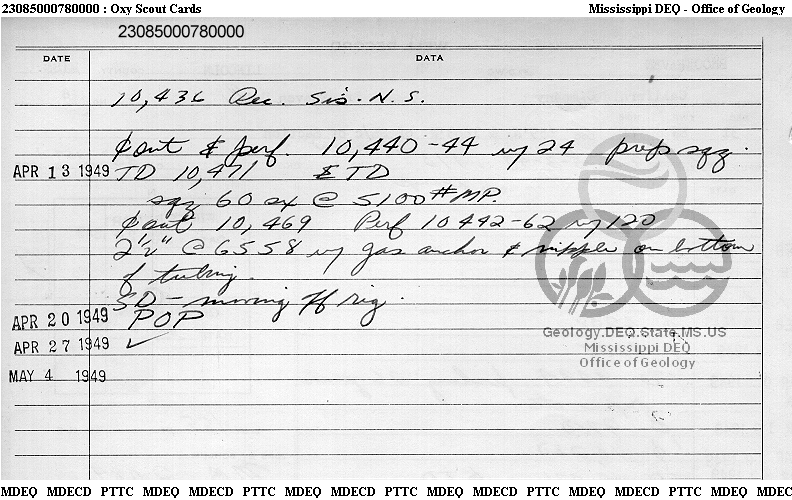 23085000780000 : Oxy Scout Cards Mississippi DEQ - Office of Geology
23085000780000
DATE DATA
10,436 Rec. Sis. N.S.
¢ out & perf. 10,440-44 w/ 24 prep sqz.
APR 13 1949 TD 10,471 ETD
sqz 60 sx @ 5100 # MP.
¢ out 10,469 Perf 10442-62 w/ 120
2½" @ 6558 w/ gas anchor & nipple on bottom
of tubing.
SD - moving off rig.
APR 20 1949 POP
APR 27 1949 ✓
MAY 4 1949
Geology.DEQ.State.MS.US
Mississippi DEQ
Office of Geology
MDEQ MDECD PTTC MDEQ MDECD PTTC MDEQ MDECD PTTC MDEQ MDECD PTTC MDEQ MDECD PTTC MDEQ MDEC